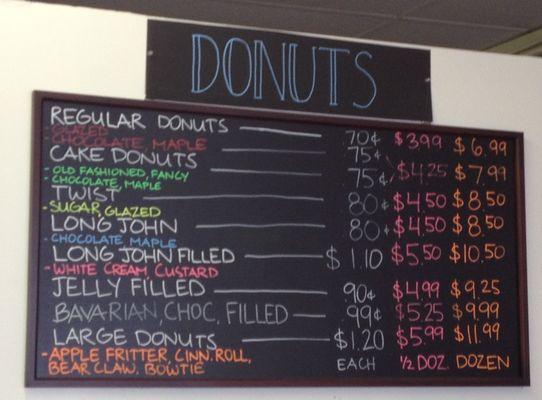 DONUTS
REGULAR DONUTS 70¢ $3.99 $6.99
- GLAZED
- CHOCOLATE, MAPLE 75¢
CAKE DONUTS 75¢ $4.25 $7.99
- OLD FASHIONED, FANCY
- CHOCOLATE, MAPLE
TWIST 80¢ $4.50 $8.50
- SUGAR, GLAZED
LONG JOHN 80¢ $4.50 $8.50
- CHOCOLATE MAPLE
LONG JOHN FILLED $1.10 $5.50 $10.50
- WHITE CREAM, CUSTARD
JELLY FILLED .90¢ $4.99 $9.25
BAVARIAN, CHOC, FILLED .99¢ $5.25 $9.99
LARGE DONUTS $1.20 $5.99 $11.99
- APPLE FRITTER, CINN. ROLL,
BEAR CLAW, BOWTIE
EACH ½ DOZ. DOZEN